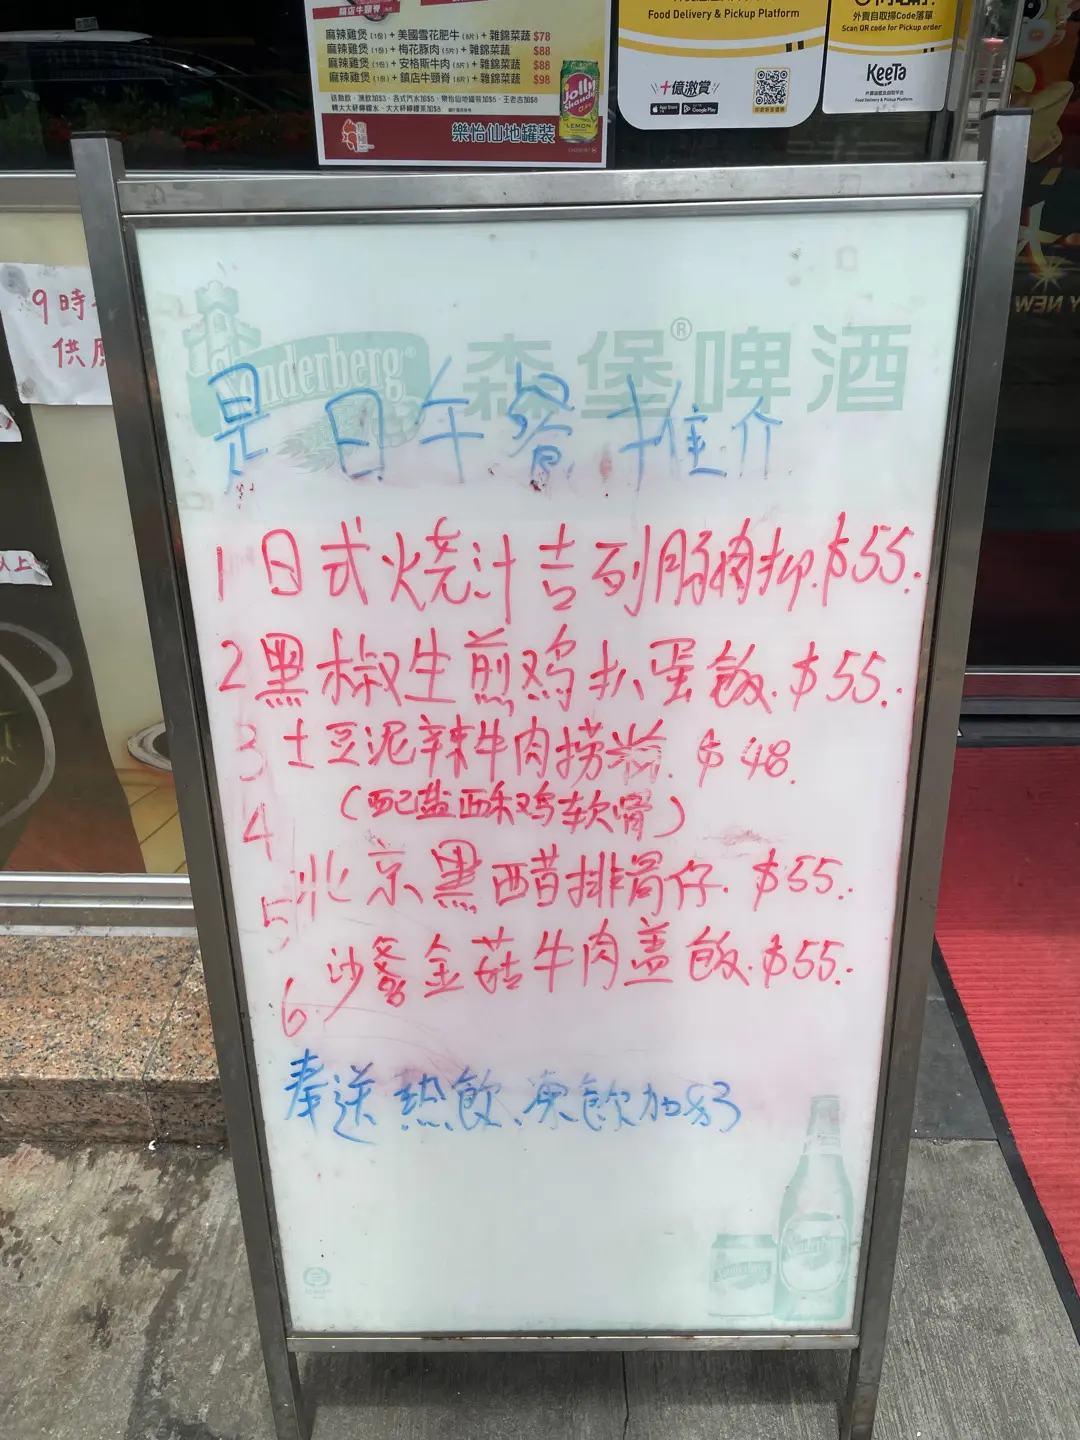 麻辣雞煲(1份)+美國雪花肥牛(8片)+雜錦菜蔬 $78
麻辣雞煲(1份)+梅花豚肉(5片)+雜錦菜蔬 $88
麻辣雞煲(1份)+安格斯牛肉(8片)+雜錦菜蔬 $88
麻辣雞煲(1份)+鎮店牛頸脊(8片)+雜錦菜蔬 $98
樂怡仙地罐裝
Jolly Shandy
LEMON
Food Delivery & Pickup Platform
十億激賞
App Store
Google Play
外賣自取掃Code落單
Scan QR code for Pickup order
KeeTa
Food Delivery & Pickup Platform
9時
供
以上
NEW
Sonderberg® 森堡®啤酒
是日午餐推介
1 日式燒汁吉列豚肉扒.$55.
2 黑椒生煎鸡扒蛋飯.$55.
3 土豆泥辣牛肉捞 $48.
(配盐酥鸡软骨)
4
北京黑醋排骨仔.$55.
5
沙爹金菇牛肉盖飯.$55.
6
奉送熱飲、凍飲加$3